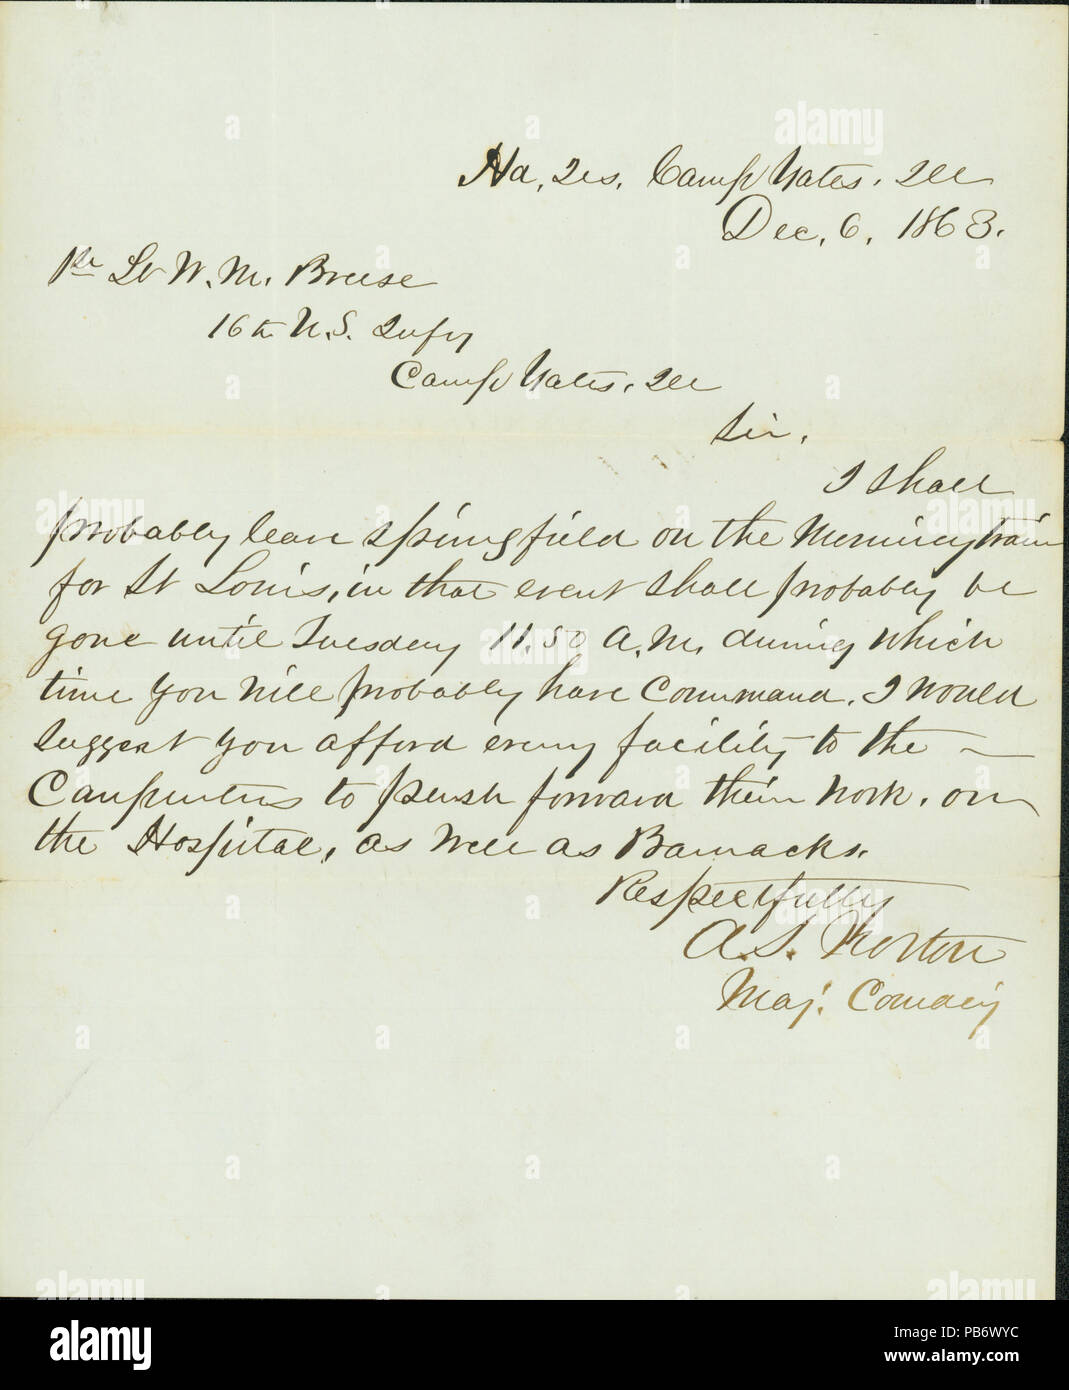 Hd. Qrs. Camp Yates. Ill
Dec. 6. 1863.
1st Lt W. M. Breese
16th U.S. Infy
Camp Yates. Ill
Sir.
I shall
probably leave Springfield on the Morning train
for St Louis, in that event shall probably be
gone until Tuesday 11.50 A.M. during which
time you will probably have Command. I would
suggest you afford every facility to the
Carpenters to push forward their work. on
the Hospital, as well as Barracks.
Respectfully
A.S. Norton
Maj. Comdg
alamy
a
alamy
Image ID: PB6WYC
www.alamy.com